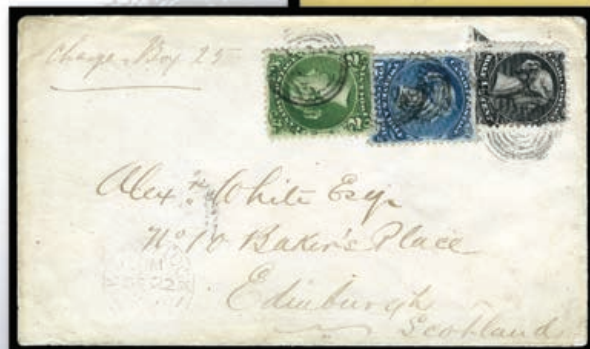 Charge Box 25
Alexr. White Esqr
No 10 Baker's Place
Edinburgh
Scotland